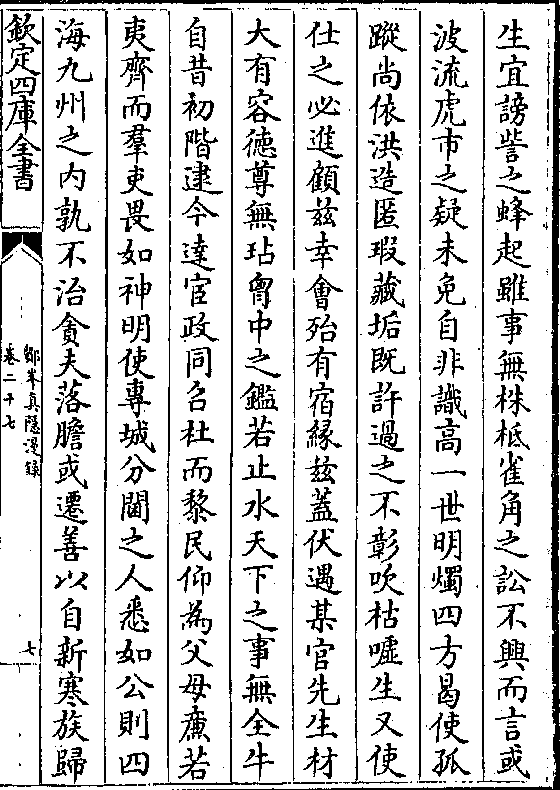 生宜謗訾之蜂起雖事無株柢雀角之訟不興而言或
波流虎市之疑未免自非識高一世明燭四方曷使孤
蹤尚依洪造匿瑕藏垢既許過之不彰吹枯噓生又使
仕之必進顧兹幸會殆有宿緣兹蓋伏遇某官先生材
大有容德尊無玷胷中之鑑若止水天下之事無全牛
自昔初階逮今達宦政同召杜而黎民仰為父母㢘若
夷齊而羣吏畏如神明使專城分閫之人悉如公則四
海九州之内孰不治貪夫落膽或遷善以自新寒族歸
欽定四庫全書
鄮峯真隱漫錄
卷二十七
七